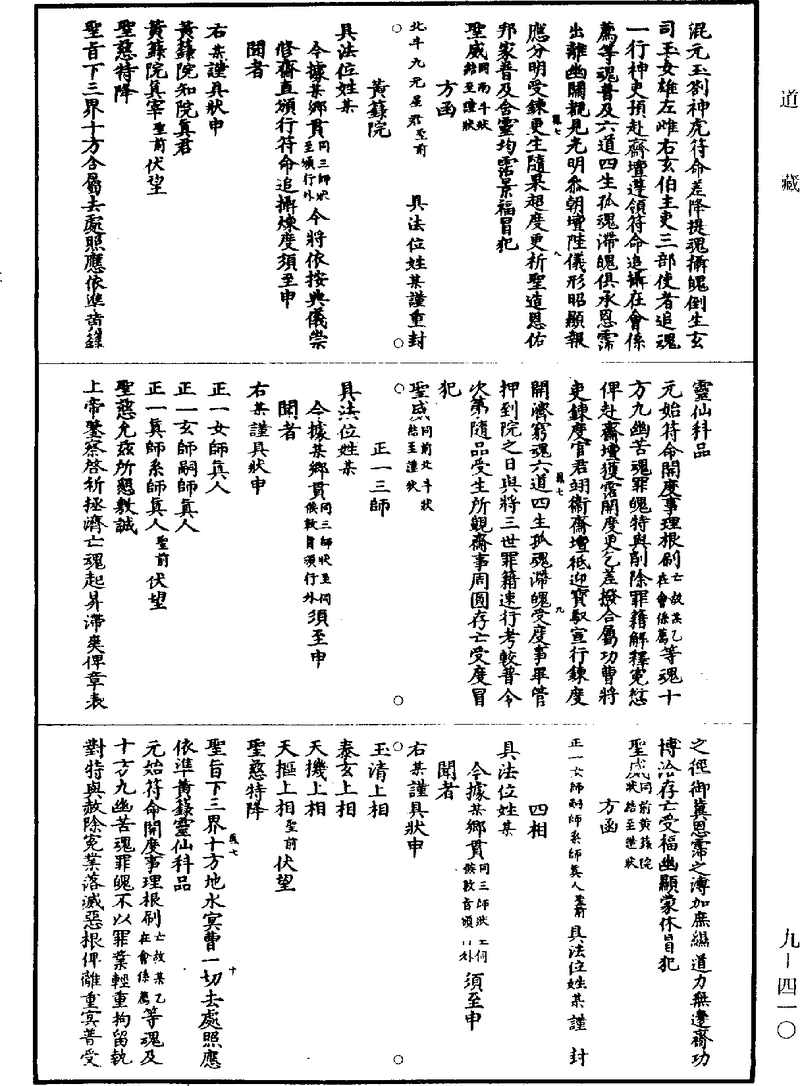 道藏
混元玉劄神虎符命差降提魂攝魄倒生玄
司玉女雄左雌右玄伯主吏三部使者追魂
一行神吏預赴齋壇遵領符命追攝在會係
薦等魂普及六道四生孤魂滯魄俱承恩霈
出離幽關覩見光明忝朝壇陛儀形昭顯報
應分明受鍊更生隨果超度更祈聖造恩佑
邦家普及含靈均霑景福冒犯
聖威同南斗狀結至謹狀
方函
北斗九元星君聖前 具法位姓某謹重封
黃籙院
具法位姓某
今據某鄉貫同三師狀至頒行外今將依按典儀崇
修齋直頒行符命追攝煉度須至申
聞者
右某謹具狀申
黃籙院知院真君
黃籙院真宰聖前伏望
聖慈特降
聖旨下三界十方合屬去處照應依準黃籙
靈仙科品
元始符命開度事理根刷亡故某乙在會係薦等魂十
方九幽苦魂罪魄特與削除罪籍解釋冤愆
俾赴齋壇獲霑開度更乞差撥合屬功曹將
吏鍊度官君翊衛齋壇祗迎寶馭宣行鍊度
開濟窮魂六道四生孤魂滯魄受度事畢管
押到院之日與將三世罪籍速行考較普令
次第隨品受生所覬齋事周圓存亡受度冒
犯
聖威同前北斗狀結至謹狀
正一三師
具法位姓某
今據某鄉貫同三師狀至伺候敕旨頒行外須至申
聞者
右某謹具狀申
正一女師真人
正一玄師嗣師真人
正一真師系師真人聖前伏望
聖慈允茲所懇敷誠
上帝鑒察啓祈拯濟亡魂起昇滯爽俾章表
之徑御冀恩霈之溥加庶緇道力無邊齋功
博洽存亡受福幽顯蒙休冒犯
聖威同前黃籙院狀結至謹狀
方函
正一女師嗣師系師真人聖前 具法位姓某謹 封
四相
具法位姓某
今據某鄉貫同三師狀至伺候敕旨頒行外須至申
聞者
右某謹具狀申
玉清上相
泰玄上相
天機上相
天樞上相聖前伏望
聖慈特降
聖旨下三界十方地水冥曹一切去處照應
依準黃籙靈仙科品
元始符命開度事理根刷亡故某乙在會係薦等魂及
十方九幽苦魂罪魄不以罪業輕重拘留執
對特與赦除冤業落滅惡根俾離重冥普受
九－四一〇